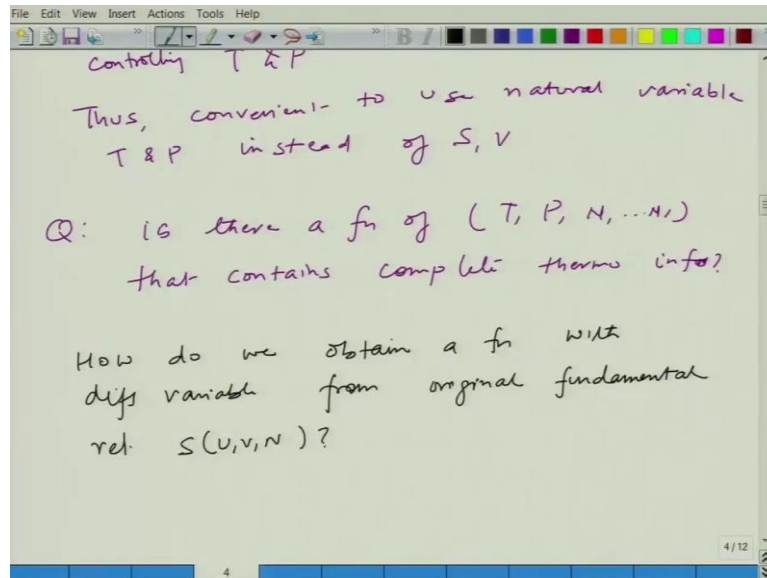 File Edit View Insert Actions Tools Help
controlling T & P
Thus, convenient to use natural variable
T & P instead of S, V
Q: is there a fn of (T, P, N, ...N,)
that contains complete thermo info?
How do we obtain a fn with
diff variable from original fundamental
rel. S(U,V,N)?
4/12
4